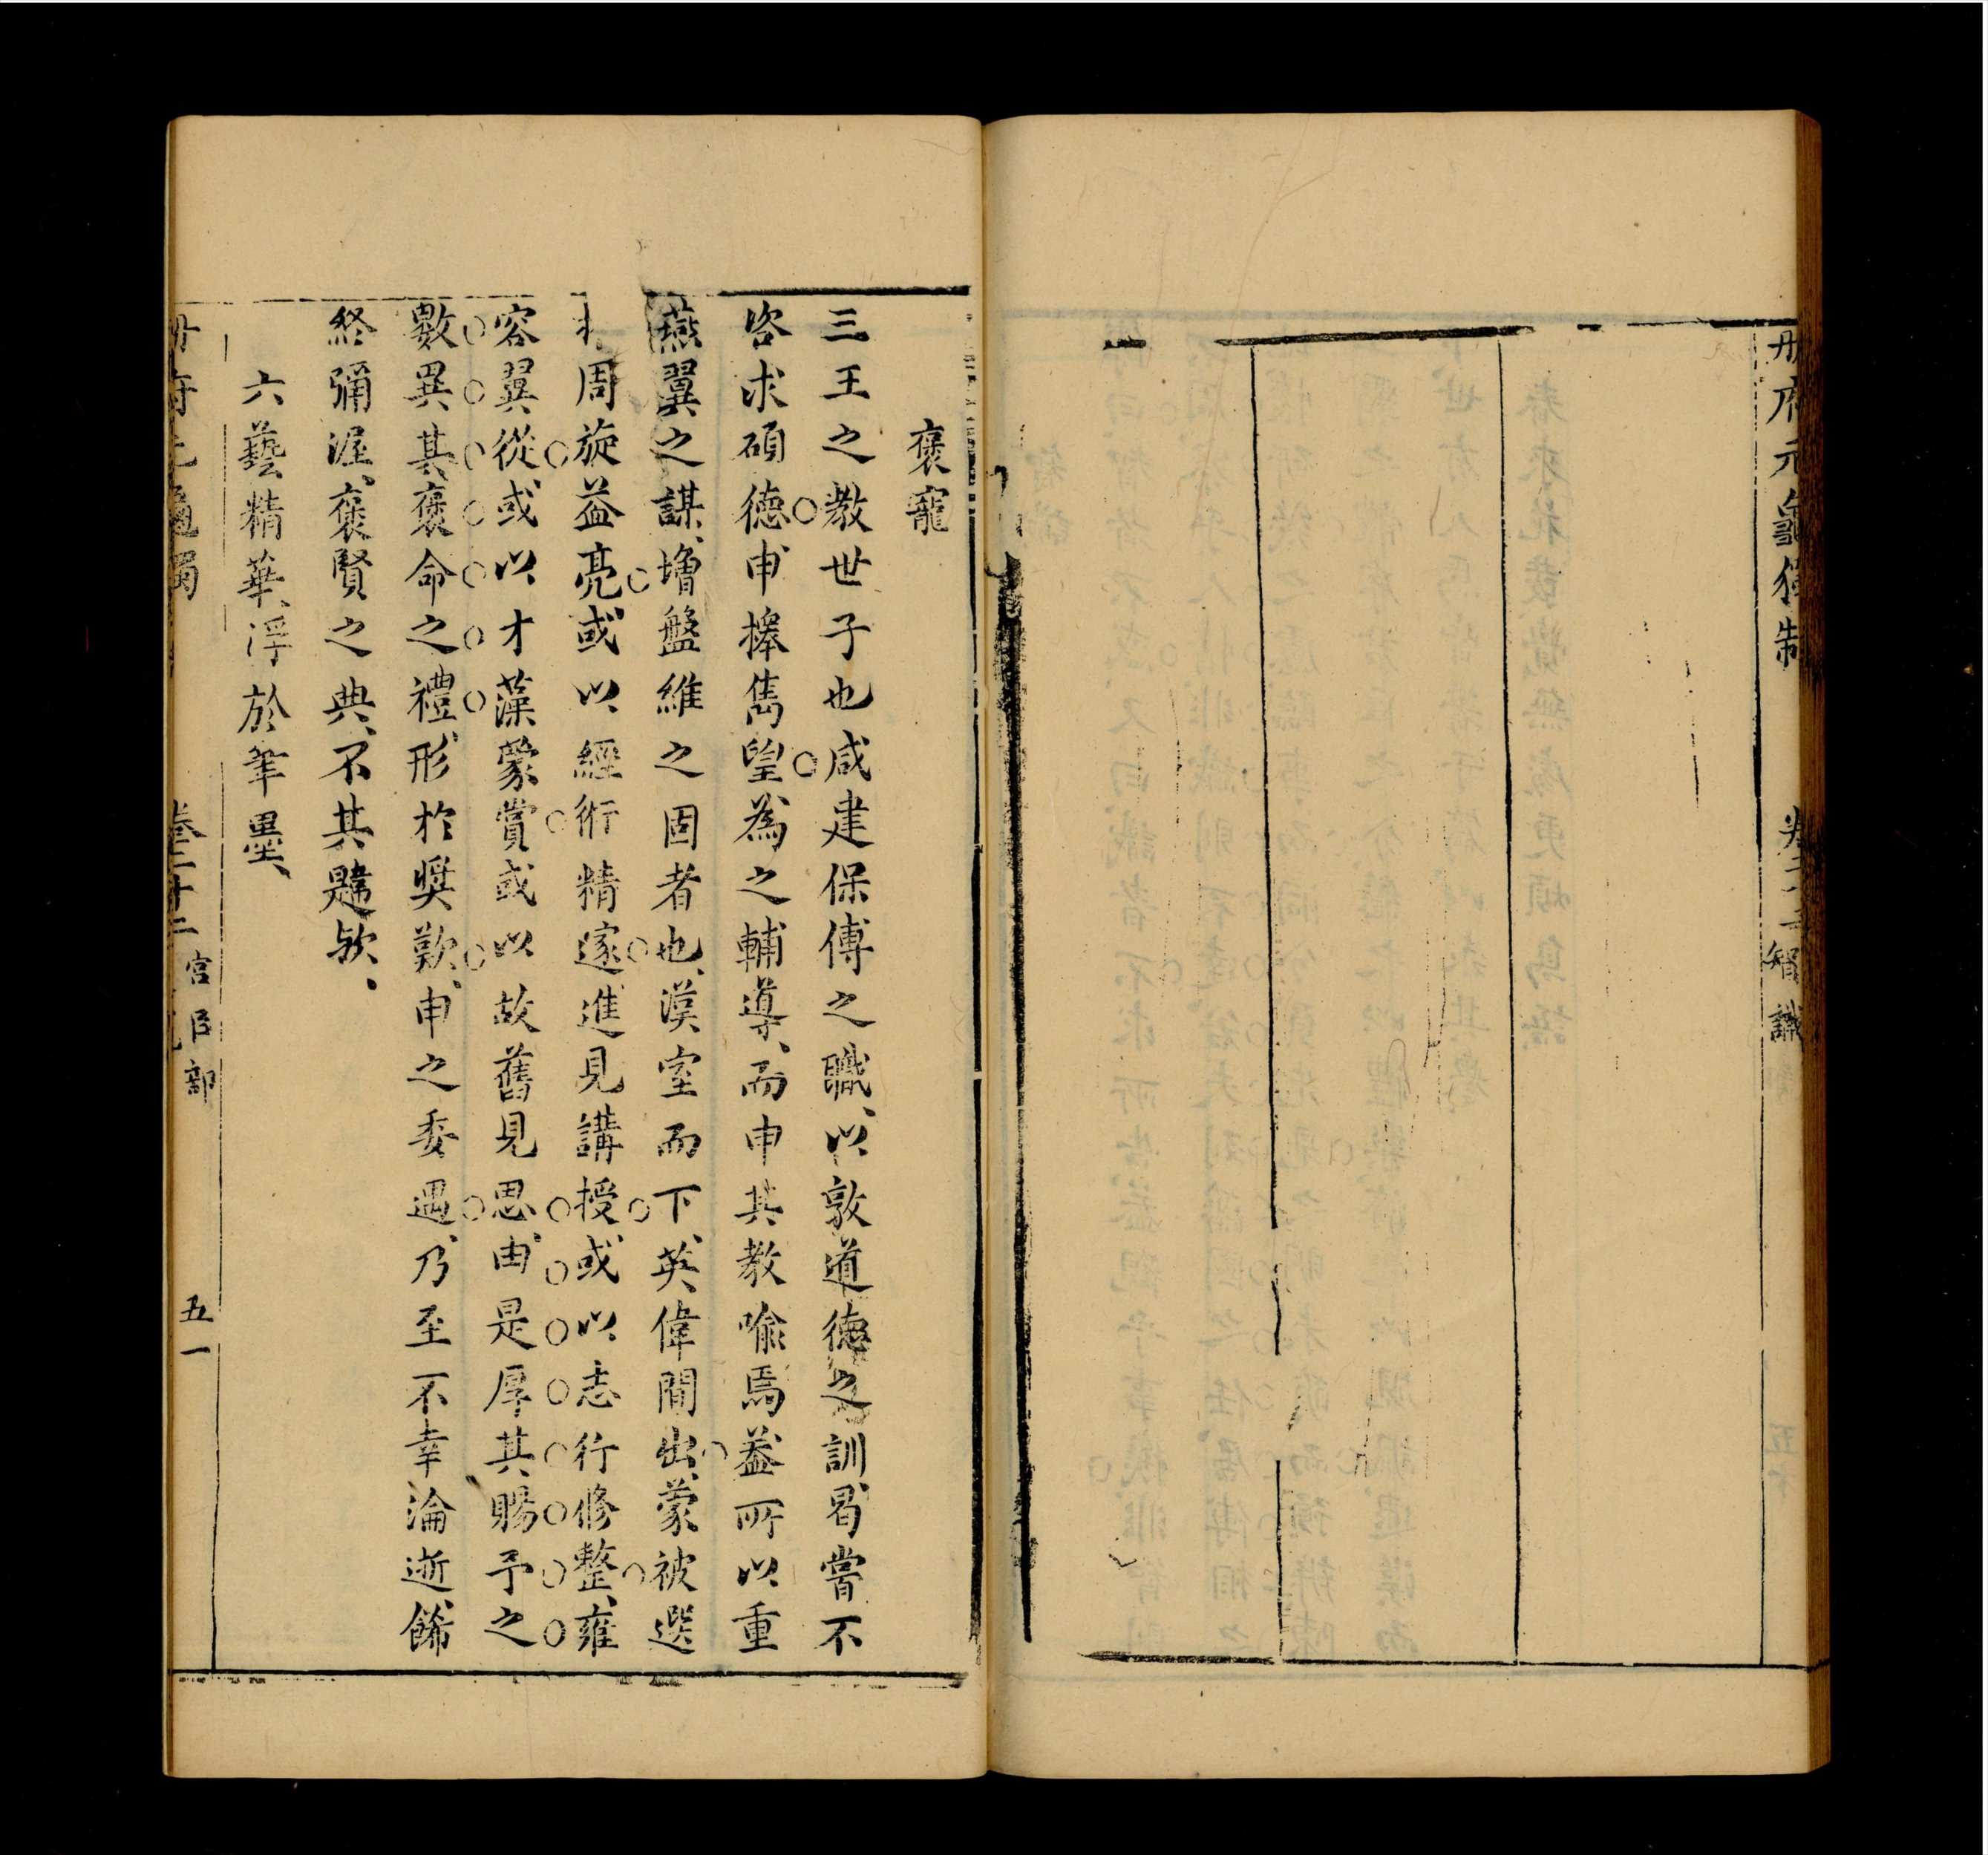 册府元龜獨制
智識
褒寵
三王之教世子也咸建保傅之職、以敦道德之訓、曷嘗不
咨求碩德、申擇雋望、為之輔導、而申其教喻焉、蓋所以重
燕翼之謀、增盤維之固者也、漢室而下、英偉間出、蒙被選
周旋益亮、或以經術精邃、進見講授、或以志行修整、雍
容翼從、或以才藻蒙賞、或以故舊見思、由是厚其賜予之
數、異其褒命之禮、形於獎歎、申之委遇、乃至不幸淪逝、餙
終彌渥、褒賢之典、不其韙歟、
六藝精華、浮於筆墨、
卷二十二
宮臣部
五一